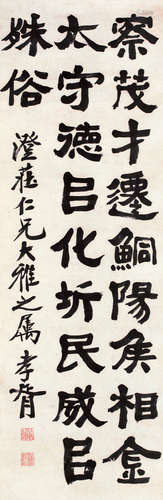 察茂才遷鮦陽侯相金
太守德㠯化圻民威㠯
殊俗
澄仁兄大雅之属 孝胥